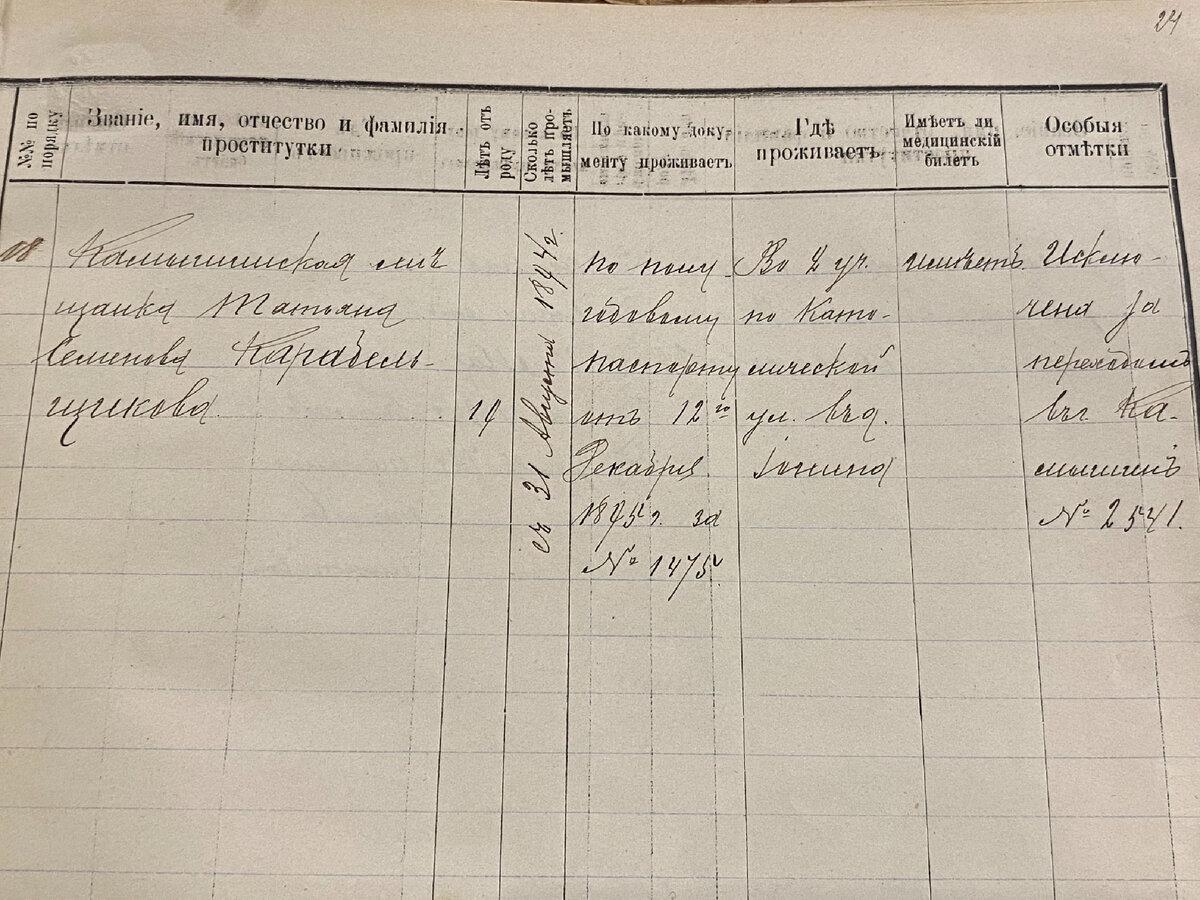 24
№№ по порядку
Званіе, имя, отчество и фамилія проститутки.
Лѣтъ отъ роду
Сколько лѣтъ промышляетъ
По какому документу проживаетъ
Гдѣ проживаетъ
Имѣетъ ли медицинскій билетъ
Особыя отмѣтки
08
Камышинская мѣ
щанка Татьяна
Семенова Карабель-
щикова.
19
съ 31 Августа 1894 г.
по полу-
годовому
паспорту
отъ 12го
Декабря
1895 г. за
№ 1475
Во 2 уч.
по Като-
лической
ул. въ д.
имѣетъ.
Исклю-
чена за
переходомъ
въ г. Ка-
мышинъ
№ 2541.